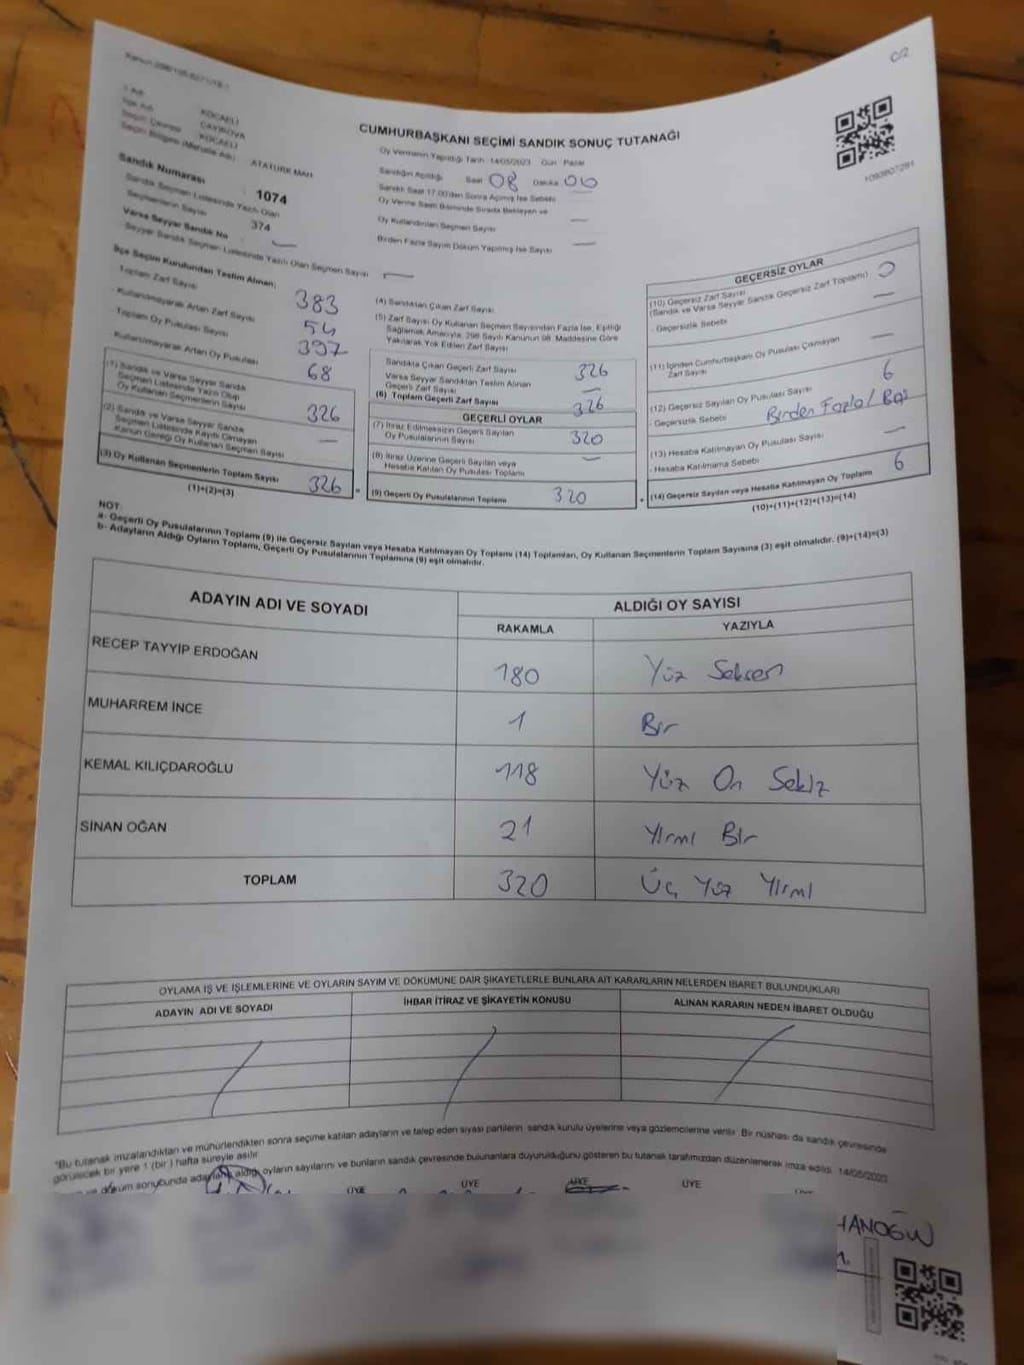 C/2
İl Adı KOCAELİ
İlçe Adı ÇAYIROVA
Seçim Çevresi KOCAELİ
Seçim Bölgesi (Mahalle Adı) ATATÜRK MAH.
Sandık Numarası : 1074
Sandık Seçmen Listesinde Yazılı Olan Seçmenlerin Sayısı : 374
Varsa Seyyar Sandık No : —
Seyyar Sandık Seçmen Listesinde Yazılı Olan Seçmen Sayısı —
CUMHURBAŞKANI SEÇİMİ SANDIK SONUÇ TUTANAĞI
Oy Vermenin Yapıldığı Tarih: 14/05/2023 Gün: Pazar
Sandığın Açıldığı Saat 08 Dakika 00
Sandık Saat 17.00'den Sonra Açılmış İse Sebebi
Oy Verme Saati Bitiminde Sırada Bekleyen ve
Oy Kullandırılan Seçmen Sayısı —
Birden Fazla Sayım Döküm Yapılmış İse Sayısı —
1093807281
İlçe Seçim Kurulundan Teslim Alınan;
Toplam Zarf Sayısı 383
- Kullanılmayarak Artan Zarf Sayısı 54
Toplam Oy Pusulası Sayısı 397
- Kullanılmayarak Artan Oy Pusulası 68
(1) Sandık ve Varsa Seyyar Sandık
Seçmen Listesinde Yazılı Olup
Oy Kullanan Seçmenlerin Sayısı 326
(2) Sandık ve Varsa Seyyar Sandık
Seçmen Listesinde Kayıtlı Olmayan
Kanun Gereği Oy Kullanan Seçmen Sayısı —
(3) Oy Kullanan Seçmenlerin Toplam Sayısı 326
(1)+(2)=(3)
(4) Sandıktan Çıkan Zarf Sayısı
(5) Zarf Sayısı Oy Kullanan Seçmen Sayısından Fazla İse, Eşitliği
Sağlamak Amacıyla, 298 Sayılı Kanunun 98. Maddesine Göre
Yakılarak Yok Edilen Zarf Sayısı
Sandıkta Çıkan Geçerli Zarf Sayısı 326
Varsa Seyyar Sandıktan Teslim Alınan
Geçerli Zarf Sayısı —
(6) Toplam Geçerli Zarf Sayısı 326
GEÇERLİ OYLAR
(7) İtiraz Edilmeksizin Geçerli Sayılan
Oy Pusulalarının Sayısı 320
(8) İtiraz Üzerine Geçerli Sayılan veya
Hesaba Katılan Oy Pusulası Toplamı —
= (9) Geçerli Oy Pusulalarının Toplamı 320
GEÇERSİZ OYLAR
(10) Geçersiz Zarf Sayısı
(Sandık ve Varsa Seyyar Sandık Geçersiz Zarf Toplamı)
- Geçersizlik Sebebi —
(11) İçinden Cumhurbaşkanı Oy Pusulası Çıkmayan
Zarf Sayısı —
(12) Geçersiz Sayılan Oy Pusulası Sayısı 6
- Geçersizlik Sebebi Birden Fazla / Boş
(13) Hesaba Katılmayan Oy Pusulası Sayısı —
- Hesaba Katılmama Sebebi
+ (14) Geçersiz Sayılan veya Hesaba Katılmayan Oy Toplamı 6
(10)+(11)+(12)+(13)=(14)
NOT:
a- Geçerli Oy Pusulalarının Toplamı (9) ile Geçersiz Sayılan veya Hesaba Katılmayan Oy Toplamı (14) Toplamları, Oy Kullanan Seçmenlerin Toplam Sayısına (3) eşit olmalıdır. (9)+(14)=(3)
b- Adayların Aldığı Oyların Toplamı, Geçerli Oy Pusulalarının Toplamına (9) eşit olmalıdır.
ADAYIN ADI VE SOYADI ALDIĞI OY SAYISI
RAKAMLA YAZIYLA
RECEP TAYYİP ERDOĞAN 180 Yüz Seksen
MUHARREM İNCE 1 Bir
KEMAL KILIÇDAROĞLU 118 Yüz On Sekiz
SİNAN OĞAN 21 Yirmi Bir
TOPLAM 320 Üç Yüz Yirmi
OYLAMA İŞ VE İŞLEMLERİNE VE OYLARIN SAYIM VE DÖKÜMÜNE DAİR ŞİKAYETLERLE BUNLARA AİT KARARLARIN NELERDEN İBARET BULUNDUKLARI
ADAYIN ADI VE SOYADI İHBAR İTİRAZ VE ŞİKAYETİN KONUSU ALINAN KARARIN NEDEN İBARET OLDUĞU
"Bu tutanak imzalandıktan ve mühürlendikten sonra seçime katılan adayların ve talep eden siyasi partilerin, sandık kurulu üyelerine veya gözlemcilerine verilir. Bir nüshası da sandık çevresinde
görülecek bir yere 1 (bir) hafta süreyle asılır.
ve döküm sonucunda adayların aldığı oyların sayılarını ve bunların sandık çevresinde bulunanlara duyurulduğunu gösteren bu tutanak tarafımızdan düzenlenerek imza edildi. 14/05/2023
ÜYE ÜYE ÜYE
HANOĞLU